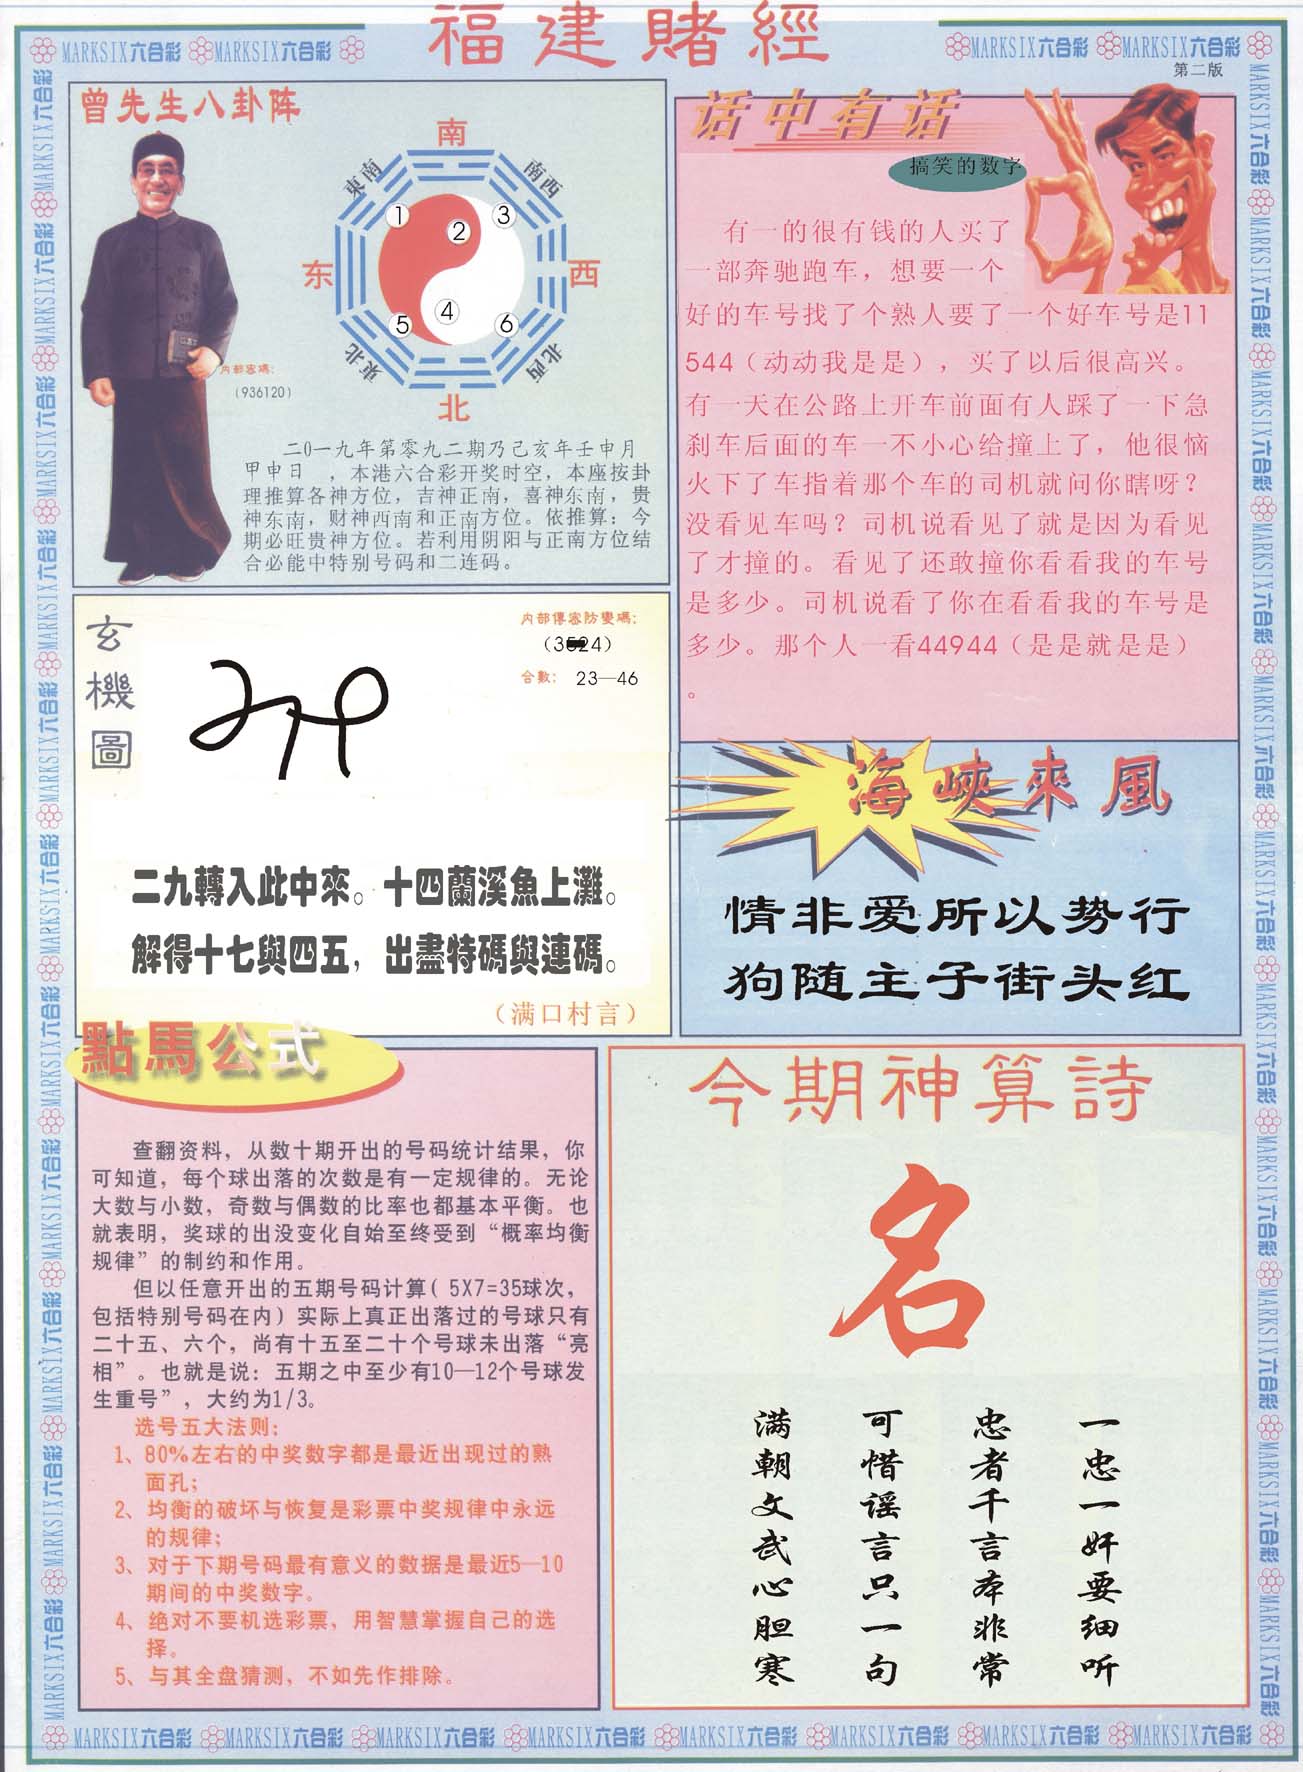 福建賭經
MARKSIX六合彩 MARKSIX六合彩
MARKSIX六合彩 MARKSIX六合彩
第二版
曾先生八卦阵
南
東南
南西
1
2
3
东
西
4
5
6
東北
北西
北
内部密碼:
(936120)
二0一九年第零九二期乃己亥年壬申月
甲申日 ，本港六合彩开奖时空，本座按卦
理推算各神方位，吉神正南，喜神东南，贵
神东南，财神西南和正南方位。依推算：今
期必旺贵神方位。若利用阴阳与正南方位结
合必能中特别号码和二连码。
话中有话
搞笑的数字
有一的很有钱的人买了
一部奔驰跑车，想要一个
好的车号找了个熟人要了一个好车号是11
544（动动我是是），买了以后很高兴。
有一天在公路上开车前面有人踩了一下急
刹车后面的车一不小心给撞上了，他很恼
火下了车指着那个车的司机就问你瞎呀？
没看见车吗？司机说看见了就是因为看见
了才撞的。看见了还敢撞你看看我的车号
是多少。司机说看了你在看看我的车号是
多少。那个人一看44944（是是就是是）
。
玄機圖
内部傳密防變碼:
合數: 23—46
二九轉入此中來。十四蘭溪魚上灘。
解得十七與四五，出盡特碼與連碼。
（满口村言）
海峽來風
情非爱所以势行
狗随主子街头红
點馬公式
查翻资料，从数十期开出的号码统计结果，你
可知道，每个球出落的次数是有一定规律的。无论
大数与小数，奇数与偶数的比率也都基本平衡。也
就表明，奖球的出没变化自始至终受到“概率均衡
规律”的制约和作用。
但以任意开出的五期号码计算( 5X7=35球次，
包括特别号码在内）实际上真正出落过的号球只有
二十五、六个，尚有十五至二十个号球未出落“亮
相”。也就是说：五期之中至少有10—12个号球发
生重号”，大约为1/3。
选号五大法则:
1、80%左右的中奖数字都是最近出现过的熟
面孔;
2、均衡的破坏与恢复是彩票中奖规律中永远
的规律;
3、对于下期号码最有意义的数据是最近5—10
期间的中奖数字。
4、绝对不要机选彩票，用智慧掌握自己的选
择。
5、与其全盘猜测，不如先作排除。
今期神算詩
名
一忠一奸要细听
忠者千言本非常
可惜谣言只一句
满朝文武心胆寒
MARKSIX六合彩 MARKSIX六合彩 MARKSIX六合彩 MARKSIX六合彩 MARKSIX六合彩 MARKSIX六合彩 MARKSIX六合彩 MARKSIX六合彩